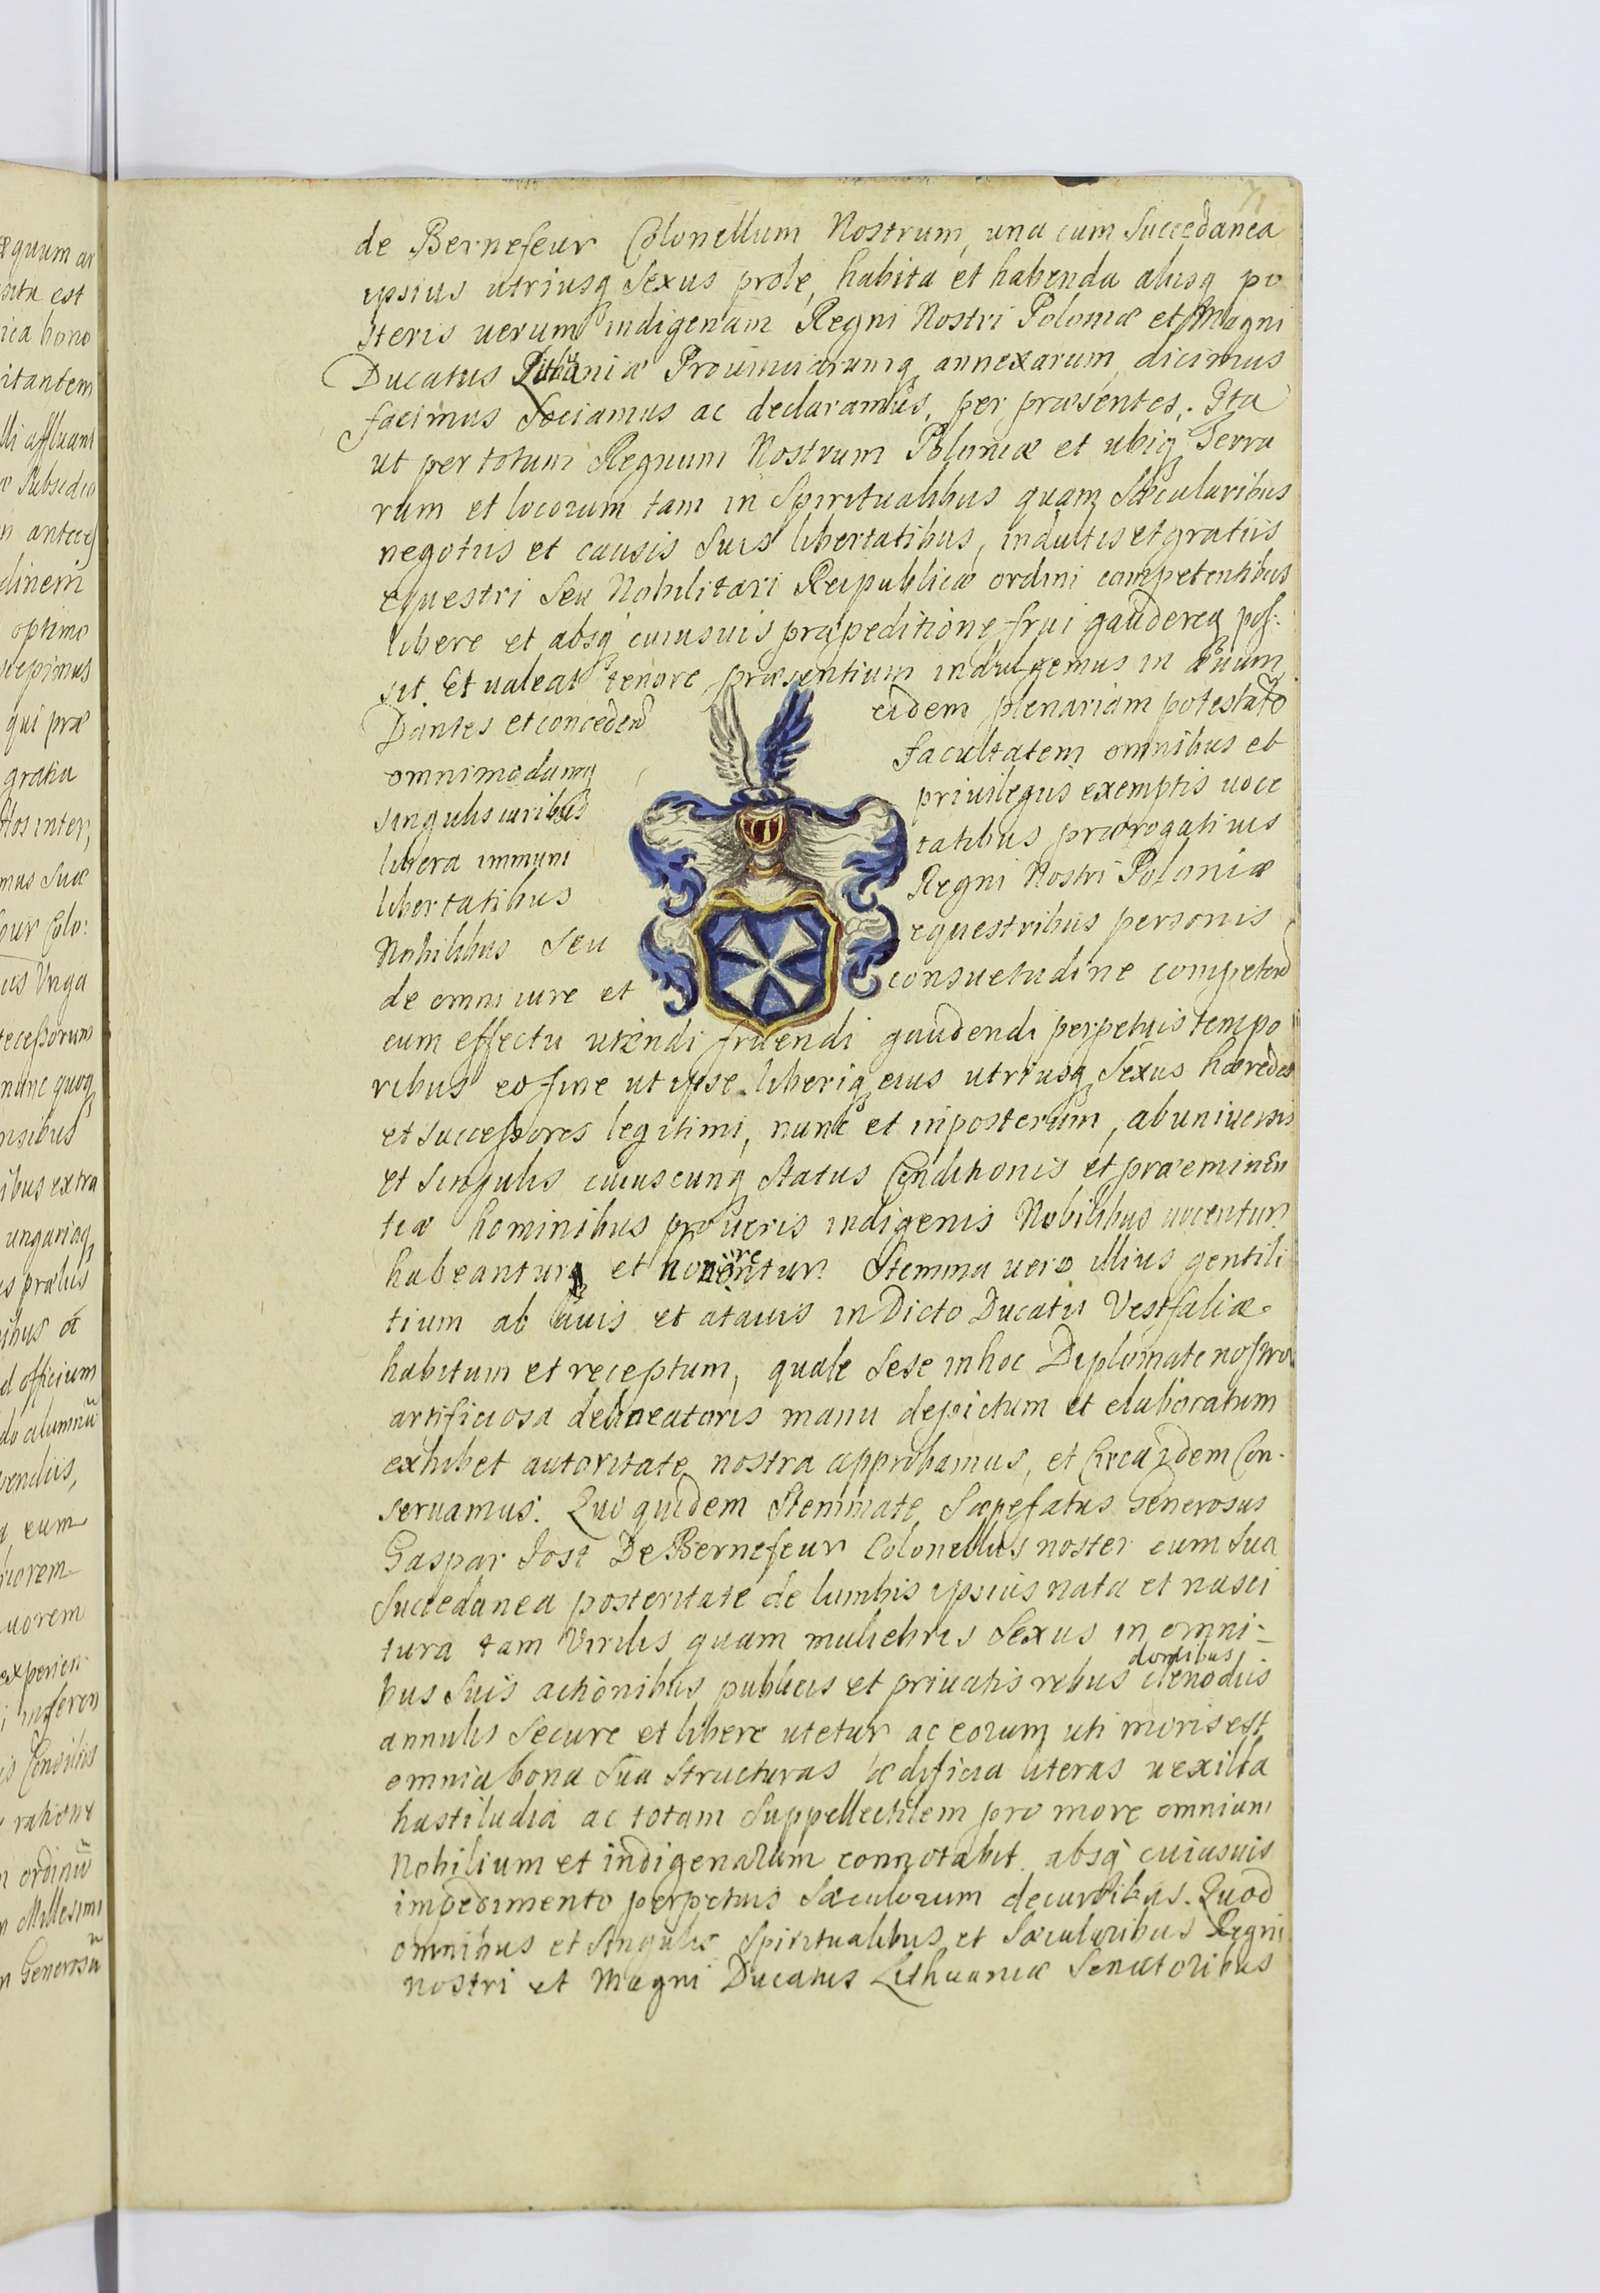 de Bernefeur Colonellum Nostrum, una cum Succedanea
ipsius utriusq Sexus prole, habita et habenda alijsq po
steris uerum indigenam Regni Nostri Poloniæ et Magni
Ducatus Lithuaniæ Prouinciarumq annexarum, dicimus
facimus Sociamus ac declaramus, per præsentes. Ita
ut per totum Regnum Nostrum Poloniæ et ubiq Terra
rum et locorum tam in Spiritualibus quam Sæcularibus
negotiis et causis Suis libertatibus, indultis et gratiis
equestri Seu Nobilitari Reipublicæ ordini competentibus
libere et absq cuiusuis præpeditione frui gaudereq pos-
sit. Et ualeat tenore præsentium indulgemus in æuum
Dantes et conceden eidem plenariam potestate
omnimodamq facultatem omnibus et
singulis iuribus priuilegiis exemptis uoce
libera immuni tatibus prærogatiuis
libertatibus Regni Nostri Poloniæ
Nobilibus Seu equestribus personis
de omni iure et consuetudine competend
cum effectu utendi fruendi gaudendi perpetuis tempo
ribus eo fine ut ipse liberiq eius utriusq Sexus hæredes
et successores legitimi, nunc et inposterum, ab uniuersis
et Singulis cuiuscunq Status Conditionis et præeminen
tiæ hominibus pro ueris indigenis Nobilibus uocentur
habeanturq et honorentur Stemma uero illius gentili
tium ab auis et atauis in Dicto Ducatu Vestfaliæ
habitum et receptum, quale Sese in hoc Diplomate nostro
artificiosa delineatoris manu depictum et elaboratum
exhibet autoritate nostra approbamus, et Circa idem Con-
seruamus. Quo quidem Stemmate Sæpefatus Generosus
Gaspar Jost De Bernefeur Colonellus noster cum Sua
Succedanea posteritate de lumbis ipsius nata et nasci
tura tam Virilis quam muliebris Sexus in omni-
bus Suis actionibus publicis et priuatis rebus domibus clenodiis
annulis Secure et libere utetur ac eorum uti moris est
omnia bona Sua Structuras ædificia literas uexilla
hastiludia ac totam Suppellectilem pro more omnium
Nobilium et indigenarum connotabit absq cuiusuis
impedimento perpetuis Sæculorum decursibus. Quod
omnibus et Singulis Spiritualibus et Sæcularibus Regni
nostri et Magni Ducatus Lithuaniæ Senatoribus